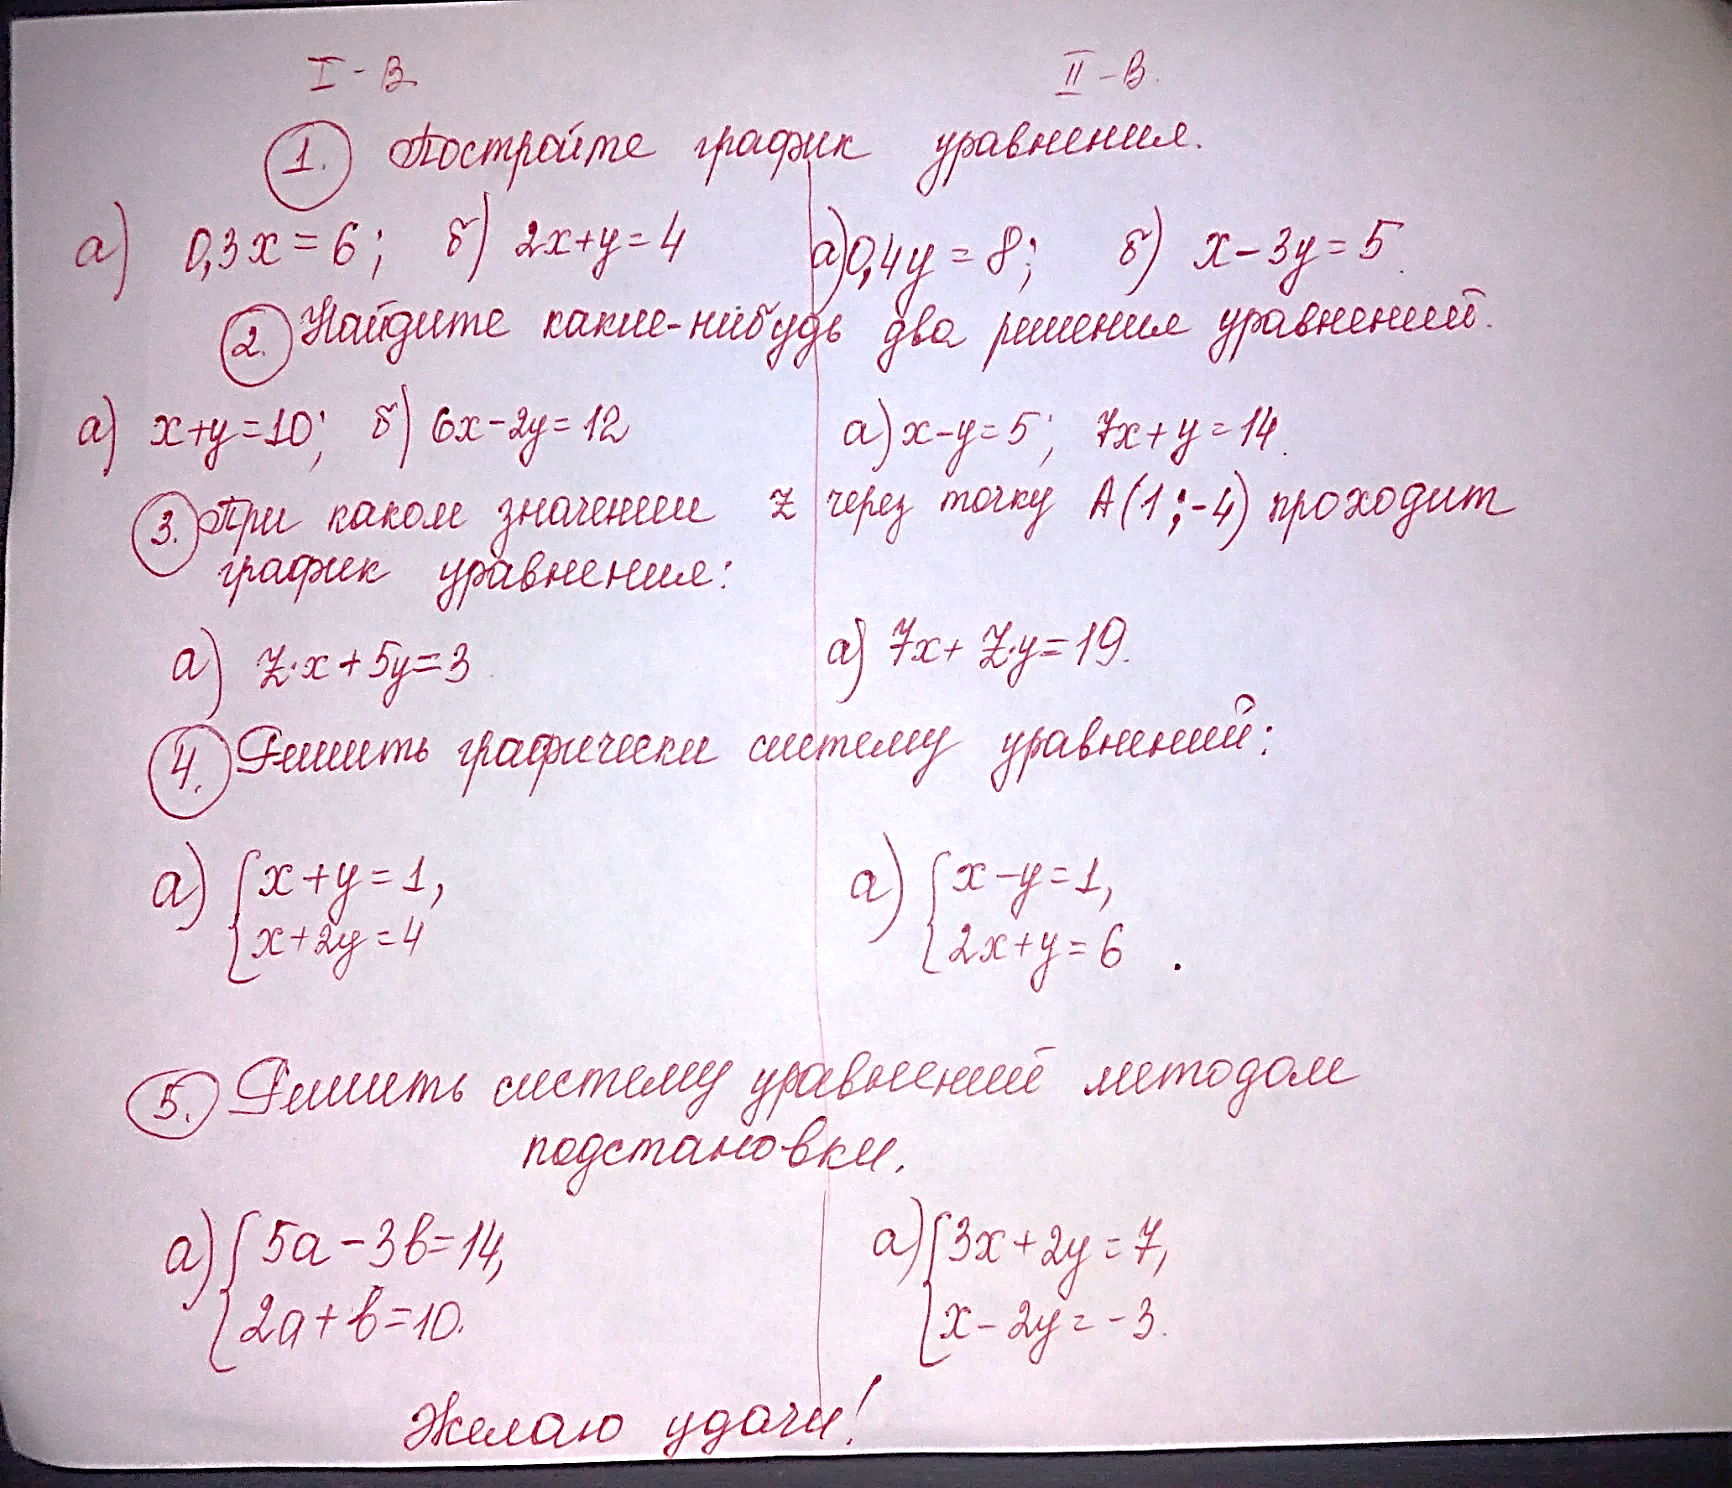 I - В. II - В.
1. Постройте график уравнения.
а) 0,3x = 6; б) 2x+y=4 а) 0,4y = 8; б) x-3y=5.
2. Найдите какие-нибудь два решения уравнений.
а) x+y=10; б) 6x-2y=12 а) x-y=5; 7x+y=14.
3. При каком значении z через точку A(1;-4) проходит
график уравнения:
а) z·x+5y=3 а) 7x+z·y=19.
4. Решить графически систему уравнений:
а) { x+y=1, а) { x-y=1,
x+2y=4 2x+y=6.
5. Решить систему уравнений методом
подстановки.
а) { 5a-3b=14, а) { 3x+2y=7,
2a+b=10. x-2y=-3.
Желаю удачи!